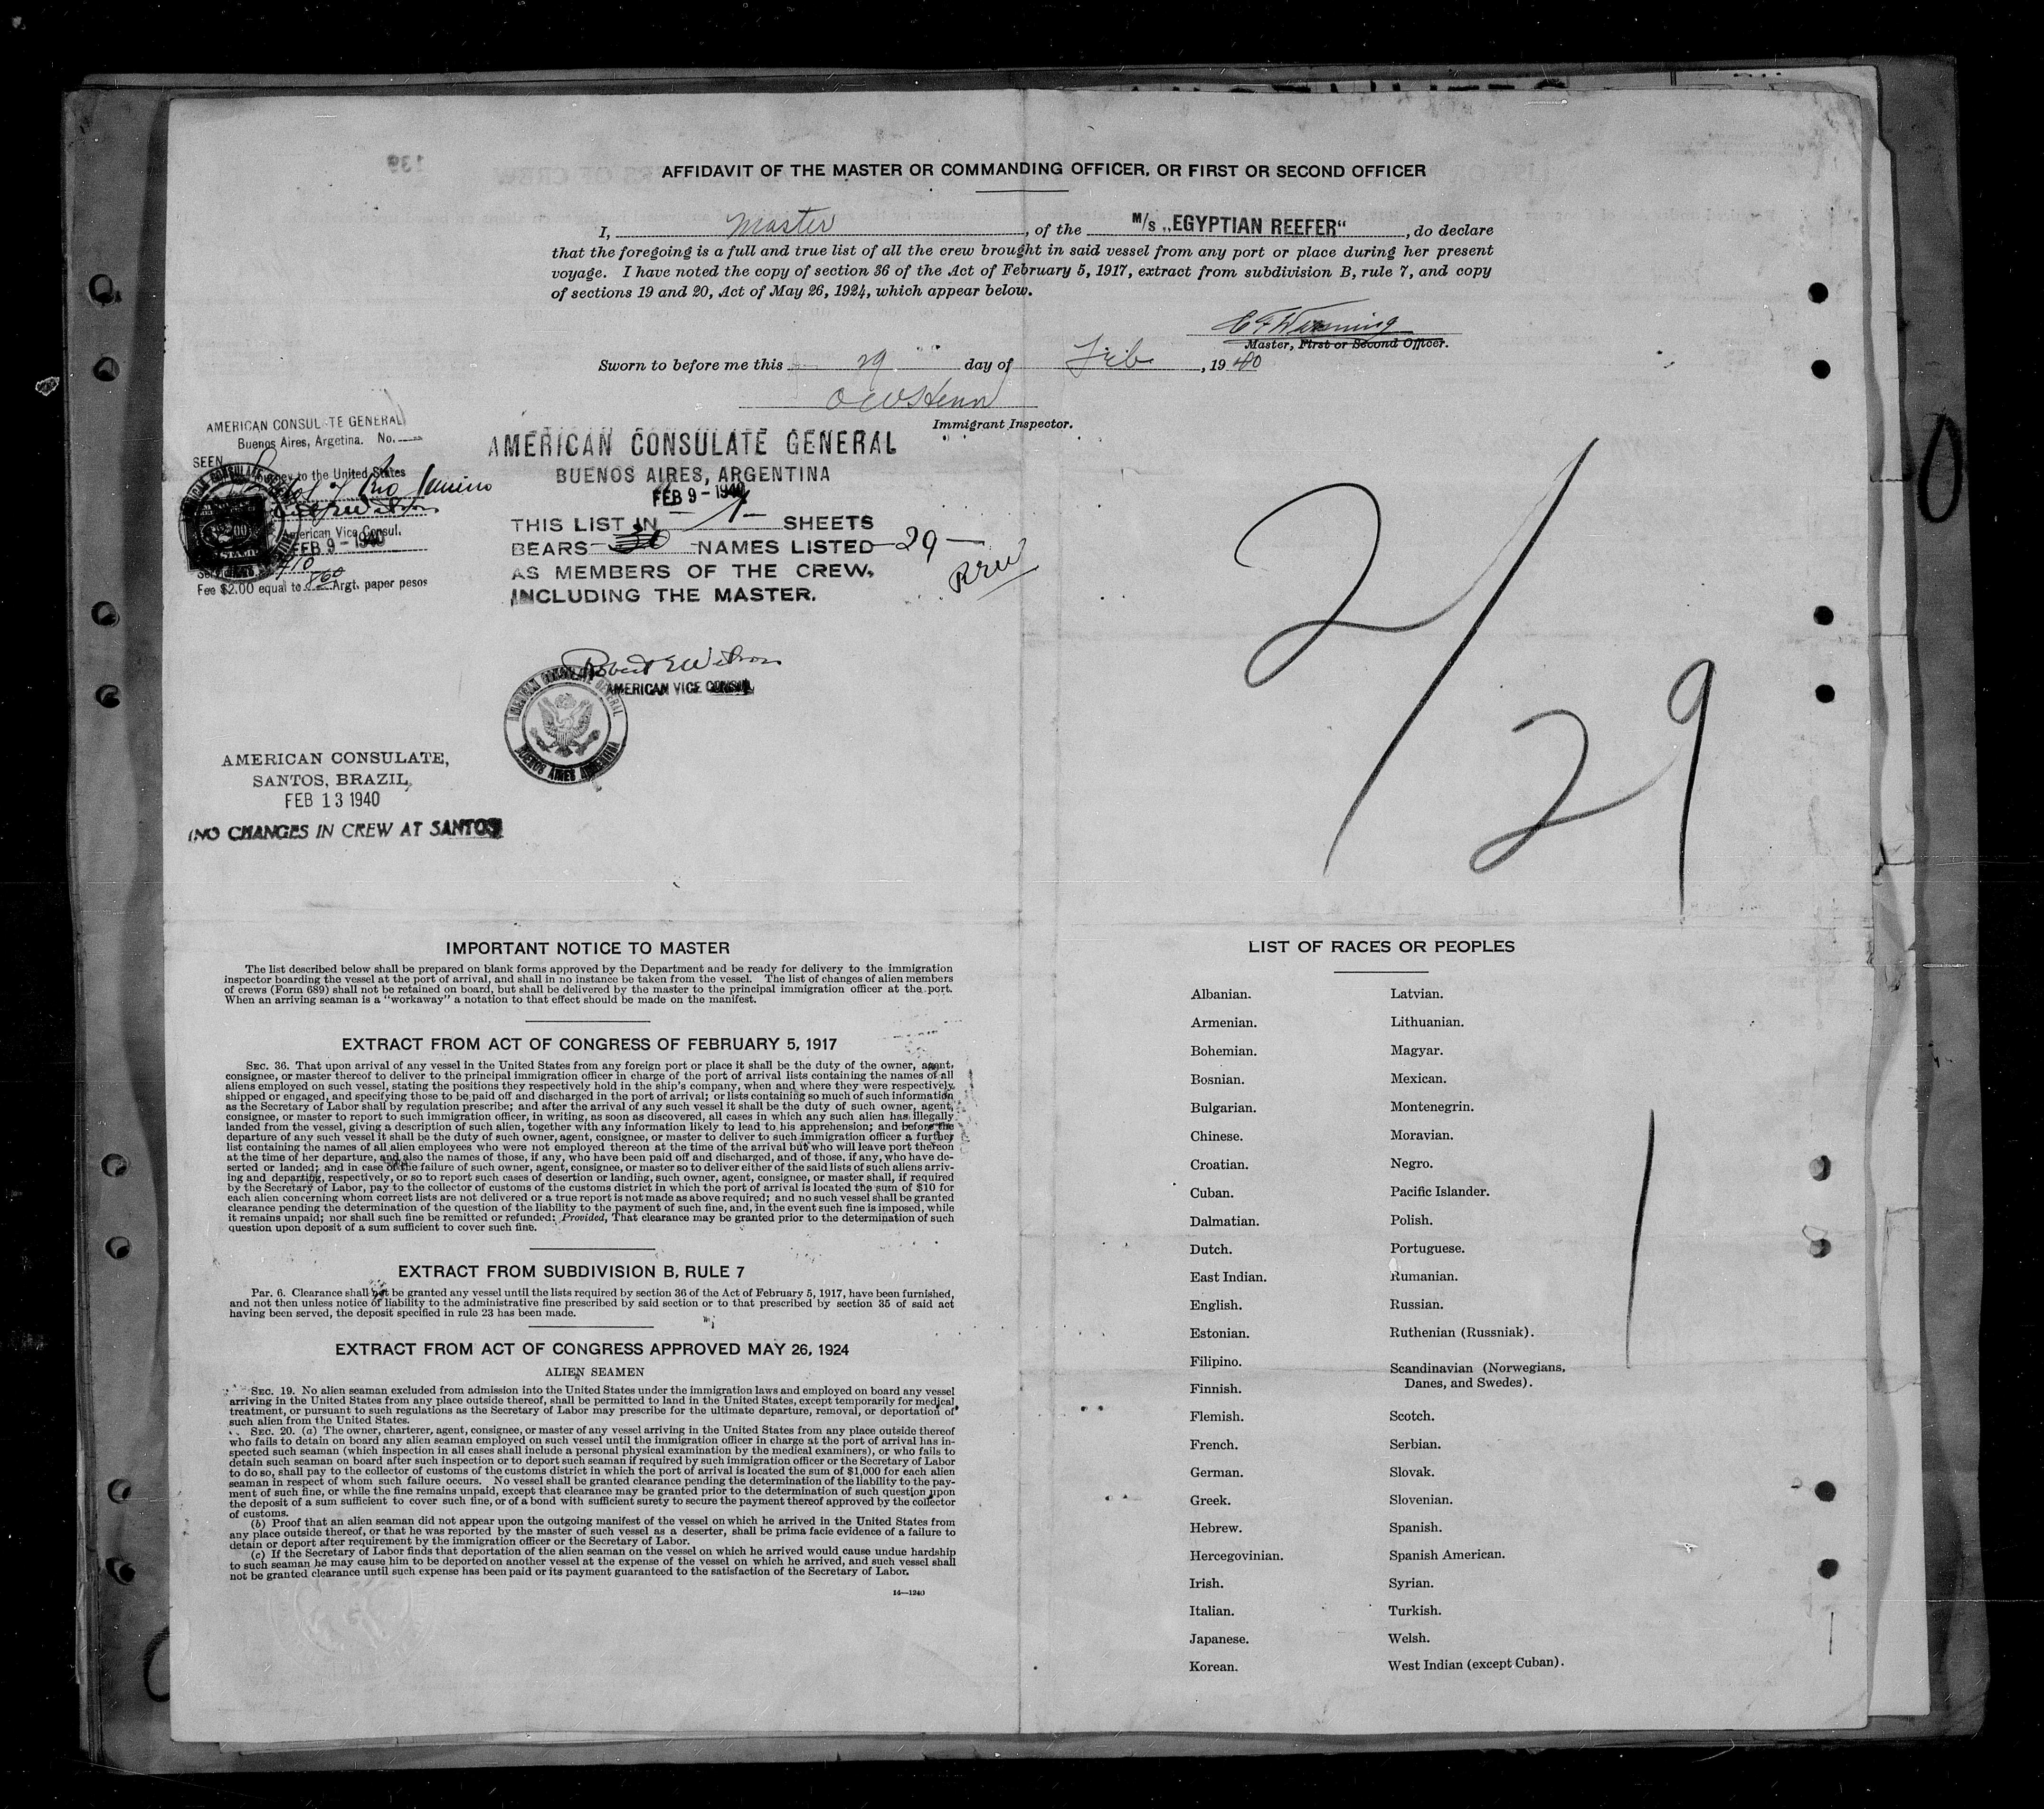 AFFIDAVIT OF THE MASTER OR COMMANDING OFFICER, OR FIRST OR SECOND OFFICER
I, Master, of the M/s „EGYPTIAN REEFER“, do declare
that the foregoing is a full and true list of all the crew brought in said vessel from any port or place during her present
voyage. I have noted the copy of section 36 of the Act of February 5, 1917, extract from subdivision B, rule 7, and copy
of sections 19 and 20, Act of May 26, 1924, which appear below.
Master, First or Second Officer.
Sworn to before me this 29 day of Feb, 1940
Immigrant Inspector.
AMERICAN CONSULATE GENERAL
Buenos Aires, Argetina. No.
SEEN
to the United States
Rio Janeiro
American Vice Consul.
FEB 9 - 1940
Fee $2.00 equal to Argt. paper pesos
AMERICAN CONSULATE GENERAL
BUENOS AIRES, ARGENTINA
FEB 9 - 1940
THIS LIST IN 1 SHEETS
BEARS NAMES LISTED 29
AS MEMBERS OF THE CREW,
INCLUDING THE MASTER.
REW
Robert E Wilson
AMERICAN VICE CONSUL
AMERICAN CONSULATE GENERAL
BUENOS AIRES ARGENTINA
AMERICAN CONSULATE,
SANTOS, BRAZIL,
FEB 13 1940
(NO CHANGES IN CREW AT SANTOS
2/29
IMPORTANT NOTICE TO MASTER
The list described below shall be prepared on blank forms approved by the Department and be ready for delivery to the immigration
inspector boarding the vessel at the port of arrival, and shall in no instance be taken from the vessel. The list of changes of alien members
of crews (Form 689) shall not be retained on board, but shall be delivered by the master to the principal immigration officer at the port.
When an arriving seaman is a "workaway" a notation to that effect should be made on the manifest.
EXTRACT FROM ACT OF CONGRESS OF FEBRUARY 5, 1917
SEC. 36. That upon arrival of any vessel in the United States from any foreign port or place it shall be the duty of the owner, agent,
consignee, or master thereof to deliver to the principal immigration officer in charge of the port of arrival lists containing the names of all
aliens employed on such vessel, stating the positions they respectively hold in the ship's company, when and where they were respectively
shipped or engaged, and specifying those to be paid off and discharged in the port of arrival; or lists containing so much of such information
as the Secretary of Labor shall by regulation prescribe; and after the arrival of any such vessel it shall be the duty of such owner, agent,
consignee, or master to report to such immigration officer, in writing, as soon as discovered, all cases in which any such alien has illegally
landed from the vessel, giving a description of such alien, together with any information likely to lead to his apprehension; and before the
departure of any such vessel it shall be the duty of such owner, agent, consignee, or master to deliver to such immigration officer a further
list containing the names of all alien employees who were not employed thereon at the time of the arrival but who will leave port thereon
at the time of her departure, and also the names of those, if any, who have been paid off and discharged, and of those, if any, who have de-
serted or landed; and in case of the failure of such owner, agent, consignee, or master so to deliver either of the said lists of such aliens arriv-
ing and departing, respectively, or so to report such cases of desertion or landing, such owner, agent, consignee, or master shall, if required
by the Secretary of Labor, pay to the collector of customs of the customs district in which the port of arrival is located the sum of $10 for
each alien concerning whom correct lists are not delivered or a true report is not made as above required; and no such vessel shall be granted
clearance pending the determination of the question of the liability to the payment of such fine, and, in the event such fine is imposed, while
it remains unpaid; nor shall such fine be remitted or refunded: Provided, That clearance may be granted prior to the determination of such
question upon deposit of a sum sufficient to cover such fine.
EXTRACT FROM SUBDIVISION B, RULE 7
Par. 6. Clearance shall not be granted any vessel until the lists required by section 36 of the Act of February 5, 1917, have been furnished,
and not then unless notice of liability to the administrative fine prescribed by said section or to that prescribed by section 35 of said act
having been served, the deposit specified in rule 23 has been made.
EXTRACT FROM ACT OF CONGRESS APPROVED MAY 26, 1924
ALIEN SEAMEN
SEC. 19. No alien seaman excluded from admission into the United States under the immigration laws and employed on board any vessel
arriving in the United States from any place outside thereof, shall be permitted to land in the United States, except temporarily for medical
treatment, or pursuant to such regulations as the Secretary of Labor may prescribe for the ultimate departure, removal, or deportation of
such alien from the United States.
SEC. 20. (a) The owner, charterer, agent, consignee, or master of any vessel arriving in the United States from any place outside thereof
who fails to detain on board any alien seaman employed on such vessel until the immigration officer in charge at the port of arrival has in-
spected such seaman (which inspection in all cases shall include a personal physical examination by the medical examiners), or who fails to
detain such seaman on board after such inspection or to deport such seaman if required by such immigration officer or the Secretary of Labor
to do so, shall pay to the collector of customs of the customs district in which the port of arrival is located the sum of $1,000 for each alien
seaman in respect of whom such failure occurs. No vessel shall be granted clearance pending the determination of the liability to the pay-
ment of such fine, or while the fine remains unpaid, except that clearance may be granted prior to the determination of such question upon
the deposit of a sum sufficient to cover such fine, or of a bond with sufficient surety to secure the payment thereof approved by the collector
of customs.
(b) Proof that an alien seaman did not appear upon the outgoing manifest of the vessel on which he arrived in the United States from
any place outside thereof, or that he was reported by the master of such vessel as a deserter, shall be prima facie evidence of a failure to
detain or deport after requirement by the immigration officer or the Secretary of Labor.
(c) If the Secretary of Labor finds that deportation of the alien seaman on the vessel on which he arrived would cause undue hardship
to such seaman he may cause him to be deported on another vessel at the expense of the vessel on which he arrived, and such vessel shall
not be granted clearance until such expense has been paid or its payment guaranteed to the satisfaction of the Secretary of Labor.
14—1240
LIST OF RACES OR PEOPLES
Albanian.
Armenian.
Bohemian.
Bosnian.
Bulgarian.
Chinese.
Croatian.
Cuban.
Dalmatian.
Dutch.
East Indian.
English.
Estonian.
Filipino.
Finnish.
Flemish.
French.
German.
Greek.
Hebrew.
Hercegovinian.
Irish.
Italian.
Japanese.
Korean.
Latvian.
Lithuanian.
Magyar.
Mexican.
Montenegrin.
Moravian.
Negro.
Pacific Islander.
Polish.
Portuguese.
Rumanian.
Russian.
Ruthenian (Russniak).
Scandinavian (Norwegians,
Danes, and Swedes).
Scotch.
Serbian.
Slovak.
Slovenian.
Spanish.
Spanish American.
Syrian.
Turkish.
Welsh.
West Indian (except Cuban).